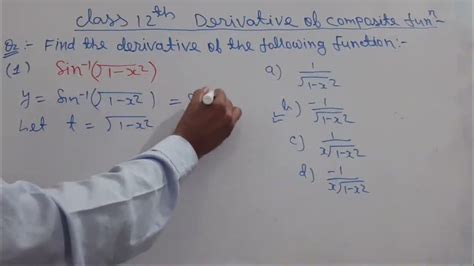 Class 12th Derivative of composite funⁿ
Q2:- Find the derivative of the following function:-
(1) Sin⁻¹(√1-x²)
y = Sin⁻¹(√1-x²) =
Let t = √1-x²
a) 1/√1-x²
b) -1/√1-x²
c) 1/x√1-x²
d) -1/x√1-x²